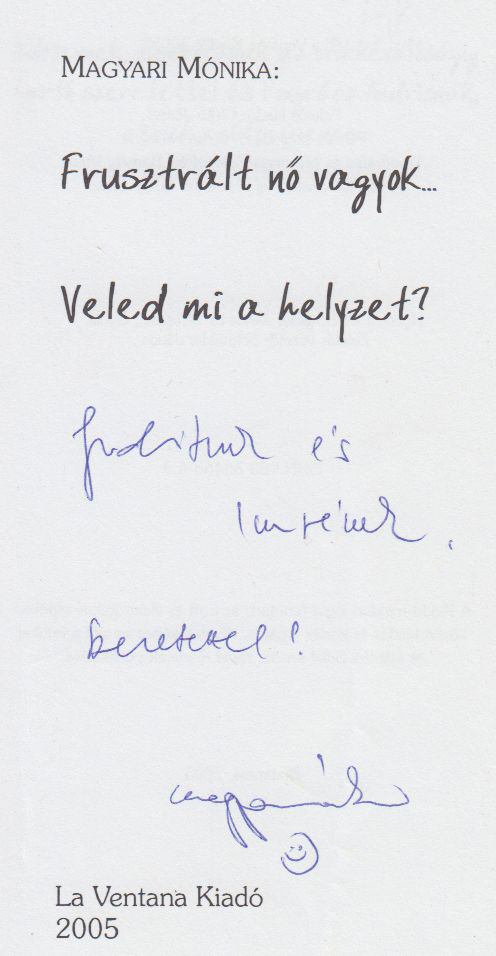 MAGYARI MÓNIKA:
Frusztrált nő vagyok...
Veled mi a helyzet?
Juditnak és
Imrének,
szeretettel!
La Ventana Kiadó
2005